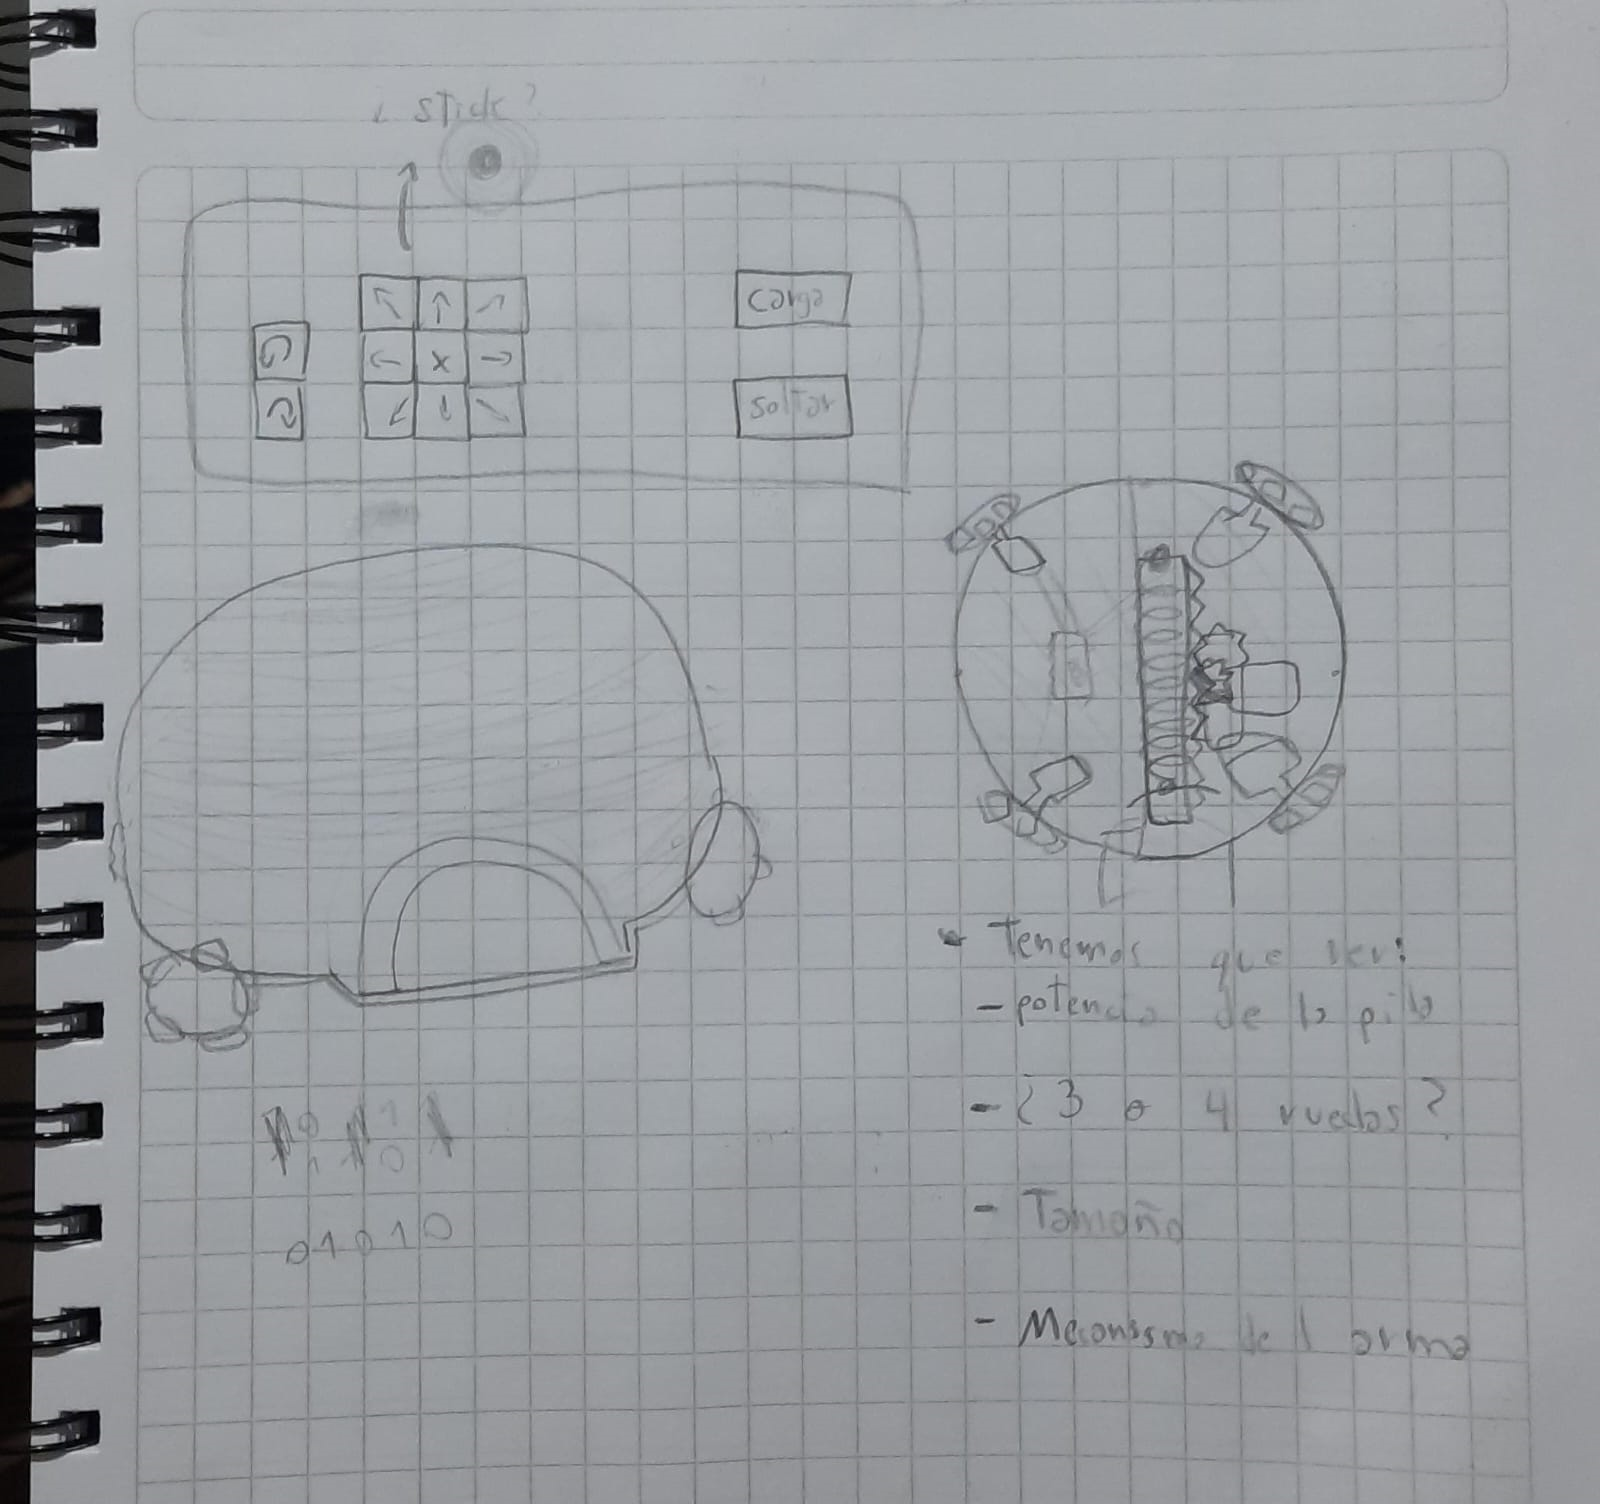 ¿ stick?
Carga
x
Soltar
Tenemos que ver:
- potencia de la pila
- ¿ 3 o 4 ruedas?
- Tamaño
- Mecanismo del arma
0 1
1 0
01010